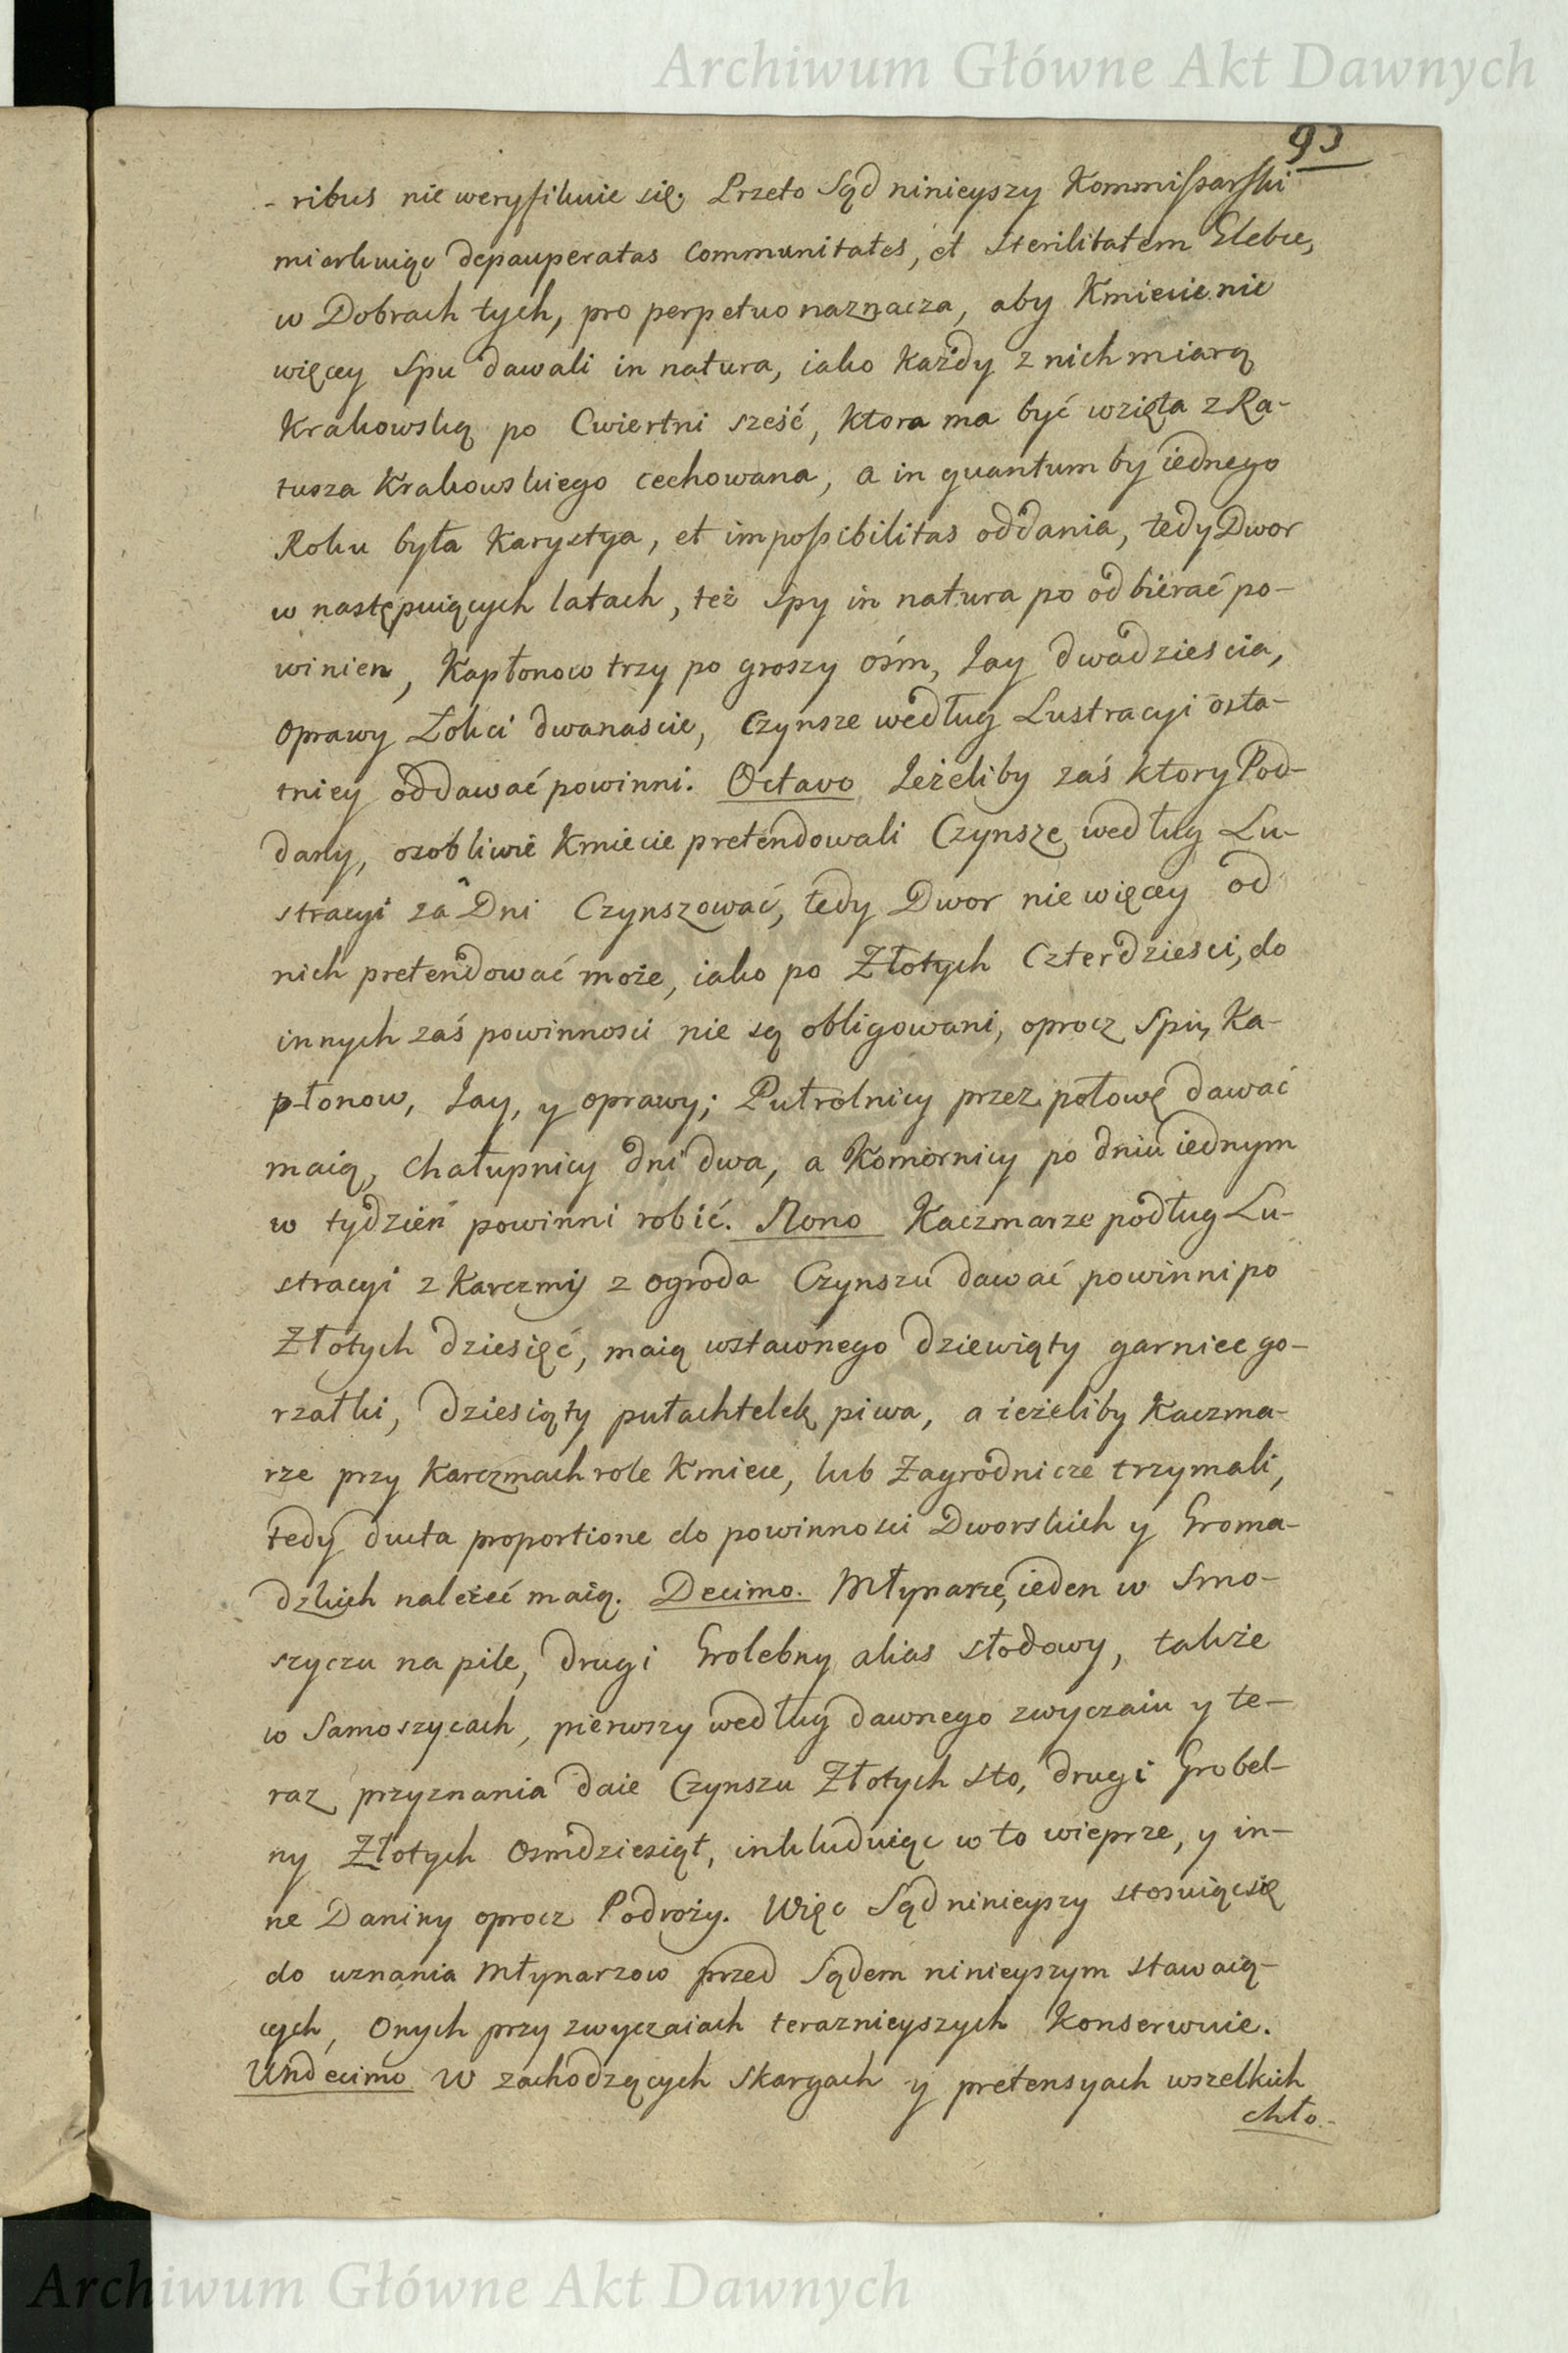 Archiwum Główne Akt Dawnych
93
- ribus nie weryfikuie się. Przeto Sąd ninieyszy Kommissarski
miarkuiąc depauperatas Communitates, et sterilitatem Glebæ,
w Dobrach tych, pro perpetuo naznacza, aby Kmiecie nie
więcey Spu dawali in natura, iako każdy z nich miarą
Krakowską po Cwiertni sześć, ktora ma być wzięta z Ra-
tusza Krakowskiego cechowana, a in quantum by iednego
Roku była Karystya, et impossibilitas oddania, tedy Dwor
w następuiących latach, też Spy in natura po odbierać po-
winien, Kapłonow trzy po groszy ośm, Jay dwadziescia,
oprawy Łokci dwanascie, Czynsze według Lustracyi osta-
tniey oddawać powinni. Octavo Jeżeliby zaś ktory Pod-
dany, osobliwie Kmiecie pretendowali Czynsze według Lu-
stracyi za Dni Czynszować, tedy Dwor nie więcey od
nich pretendować może, iako po Złotych Czterdziesci, do
innych zaś powinnosci nie są obligowani, oprocz Spu, Ka-
płonow, Jay, y oprawy; Pułrolnicy przez połowę dawać
maią, Chałupnicy dni dwa, a Komornicy po dniu iednym
w tydzień powinni robić. Nono Kaczmarze podług Lu-
stracyi z Karczmy z ogroda Czynszu dawać powinni po
Złotych dziesięć, maią wstawnego dziewiąty garniec go-
rzałki, dziesiąty pułachtelek piwa, a ieżeliby Kaczma-
rze przy Karczmach role Kmiece, lub Zagrodnicze trzymali,
tedy ducta proportione do powinnosci Dworskich y Groma-
dzkich należeć maią. Decimo. Młynarze, ieden w Smo-
szyczu na pile, drugi Grolebny alias słodowy, także
w Samoszycach, pierwszy według dawnego zwyczaiu y te-
raz przyznania daie Czynszu Złotych sto, drugi Grobel-
ny Złotych osmdziesiąt, inkluduiąc w to wieprze, y in-
ne Daniny oprocz Podroży. Więc Sąd ninieyszy stosuiąc się
do uznania Młynarzow przed Sądem ninieyszym stawaią-
cych, Onych przy zwyczaiach teraznieyszych Konserwuie.
Undecimo W zachodzących skargach y pretensyach wszelkich
chło-
Archiwum Główne Akt Dawnych